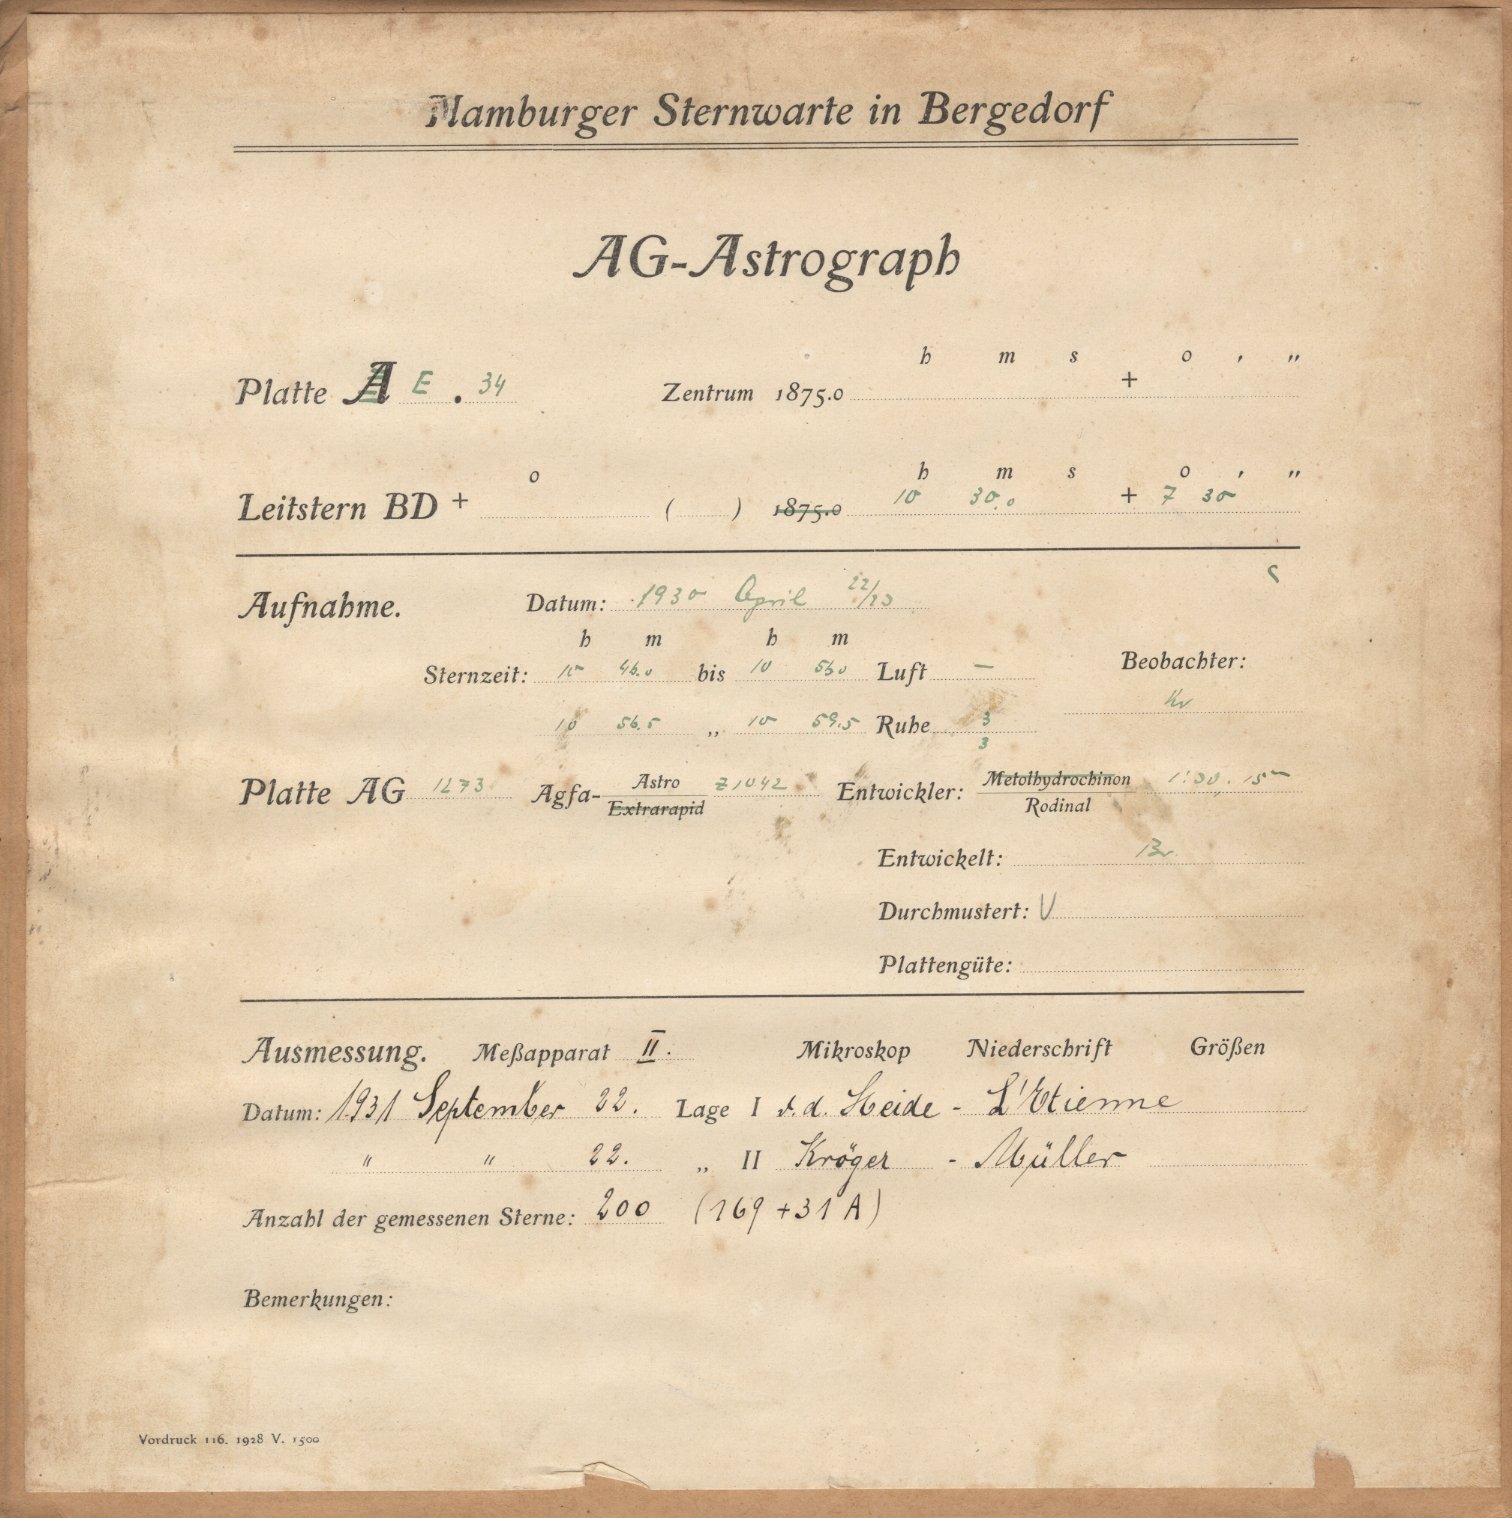 Hamburger Sternwarte in Bergedorf
AG-Astrograph
h m s o ' "
Platte A E . 34 Zentrum 1875.0 +
o h m s o ' "
Leitstern BD + ( ) 1875.0 10 30.0 + 7 30
Aufnahme. Datum: 1930 April 22/23
h m h m
Sternzeit: 10 46.0 bis 10 56.0 Luft — Beobachter:
10 56.5 „ 10 59.5 Ruhe 3 Kr
3
Platte AG 1273 Agfa- Astro Z1042 Entwickler: Metolhydrochinon
Extrarapid Rodinal
Entwickelt: Br
Durchmustert: V
Plattengüte:
Ausmessung. Meßapparat II. Mikroskop Niederschrift Größen
Datum: 1931 September 22. Lage I v.d. Heide - L'Etienne
" " 22. „ II Kröger - Müller
Anzahl der gemessenen Sterne: 200 (169 + 31 A)
Bemerkungen:
Vordruck 116. 1928 V. 1500